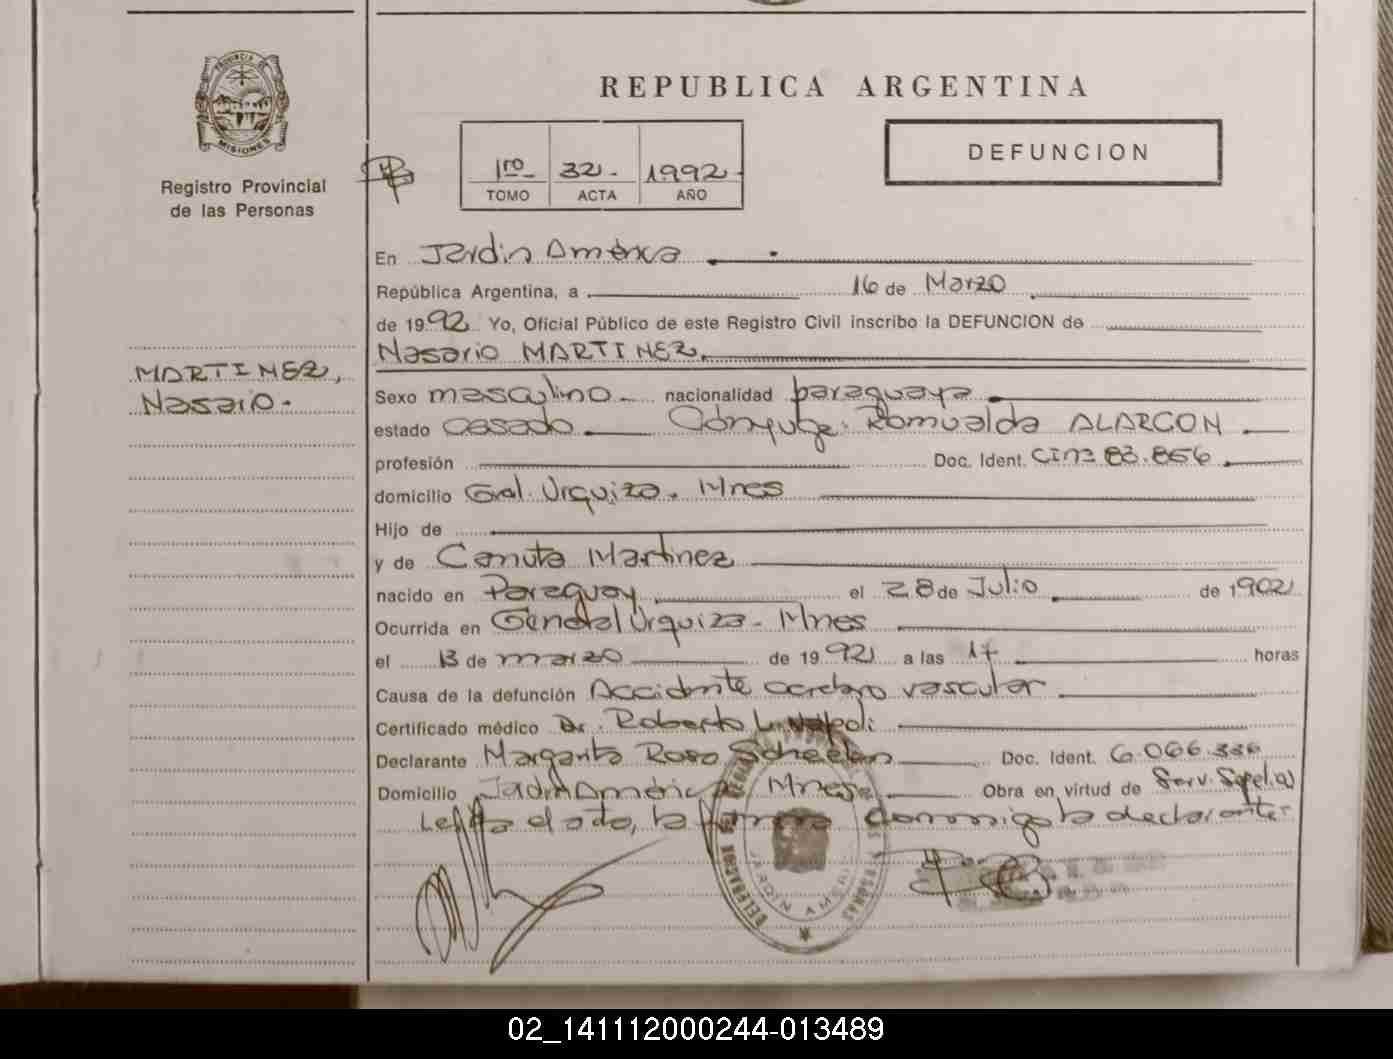 PROVINCIA DE
MISIONES
Registro Provincial
de las Personas
MARTINEZ,
Nasario.-
REPUBLICA ARGENTINA
1ro 32.- 1992.-
TOMO ACTA AÑO
DEFUNCION
En Jardin América
República Argentina, a 16 de Marzo
de 1992 Yo, Oficial Público de este Registro Civil inscribo la DEFUNCION de
Nasario MARTINEZ.
Sexo masculino nacionalidad paraguaya
estado casado Cónyuge: Romualda ALARCON
profesión Doc. Ident. 83.856
domicilio Gral. Urquiza. Mnes
Hijo de
y de Canuta Martinez
nacido en Paraguay el 28 de Julio de 1902
Ocurrida en General Urquiza - Mnes
el 13 de marzo de 1992 a las 17 horas
Causa de la defunción Accidente cerebro vascular
Certificado médico Dr. Roberto L. Napoli
Declarante Margarita Rosa Doc. Ident. 6.066.336
Domicilio Jardin América Mnes Obra en virtud de Serv. Sepelios
Leída el acta, la firma conmigo la declarante.-
JARDIN AMERI
02_141112000244-013489